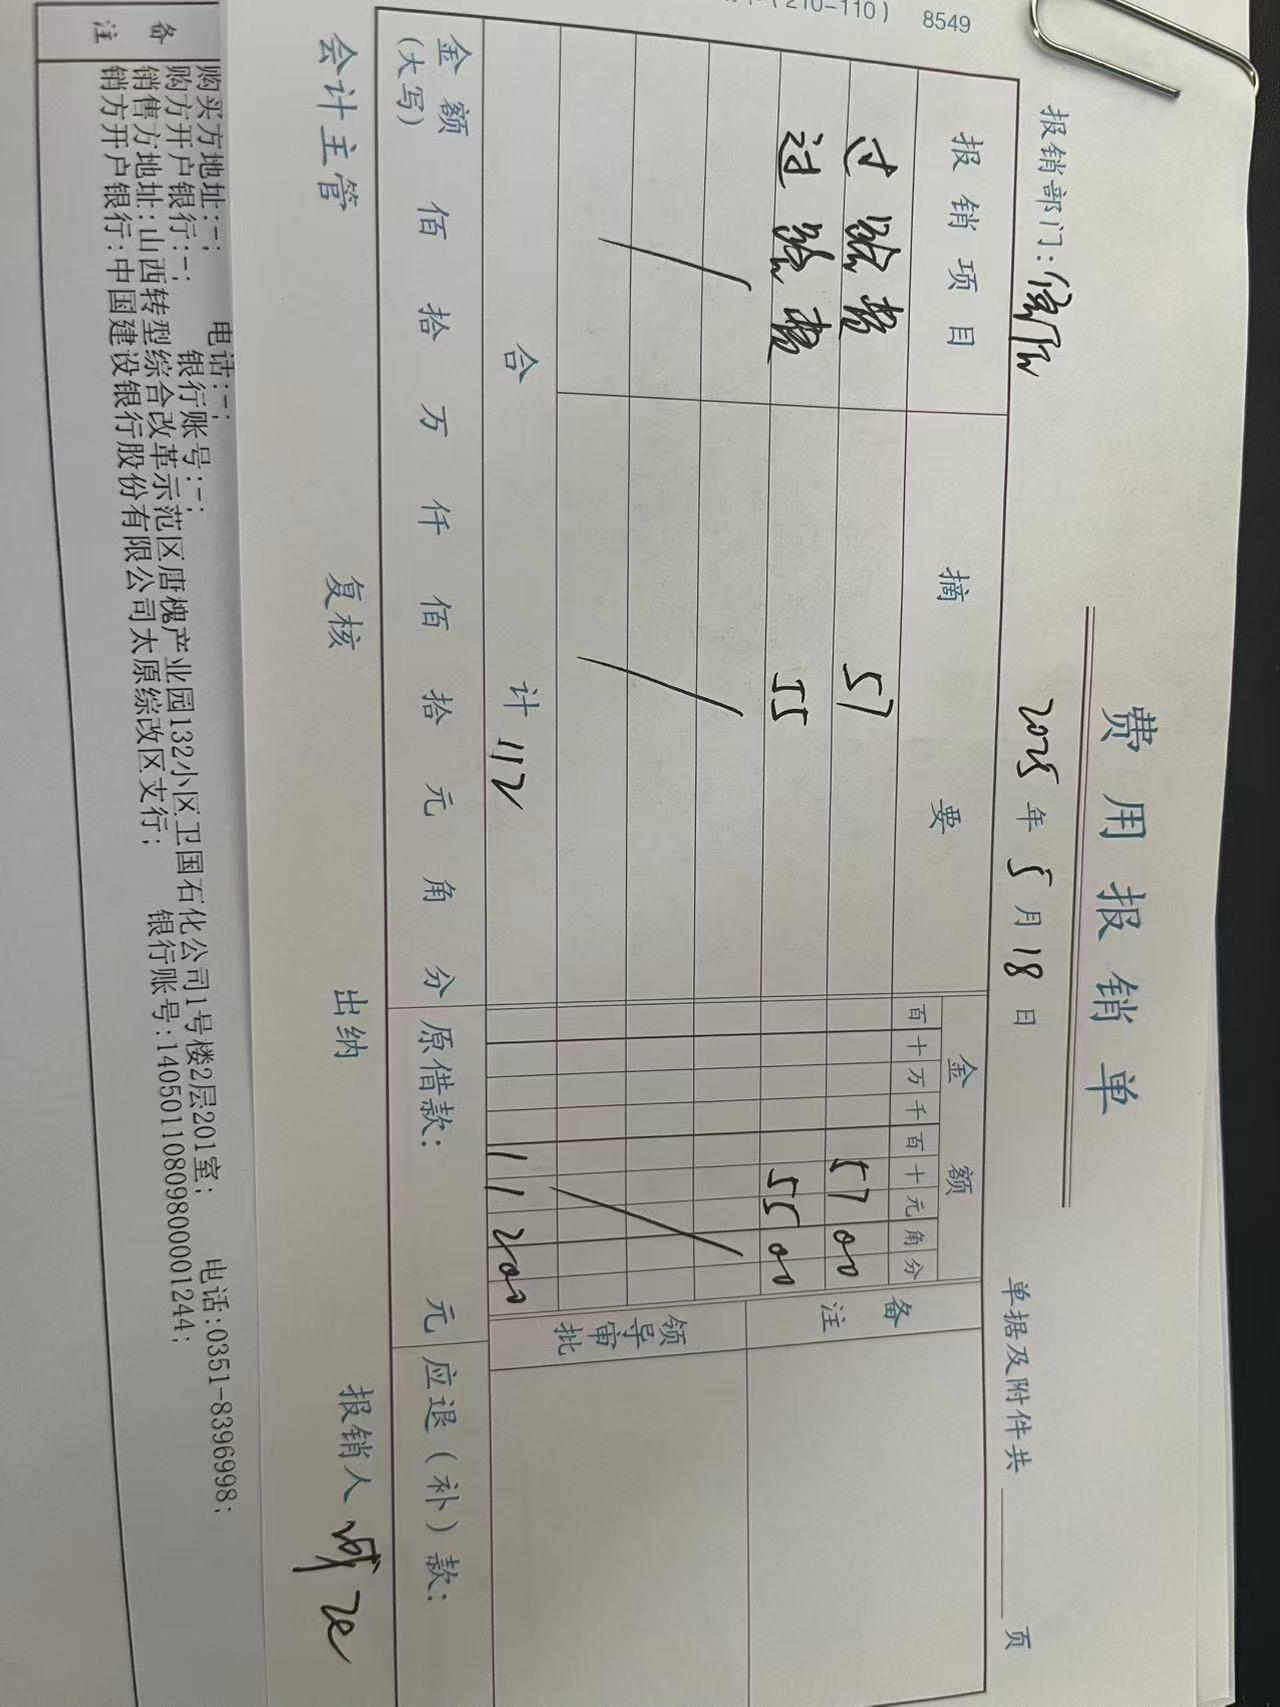 (210-110) 8549
费用报销单
报销部门: 2025年5月18日 单据及附件共 页
报销项目 摘要 金额 备注
百十万千百十元角分
过路费 57 5700
过路费 55 5500
领导审批
合计 112 11200
金额(大写) 佰拾万仟佰拾元角分 原借款: 元 应退(补)款:
会计主管 复核 出纳 报销人
备注
购买方地址:-; 电话:-;
购方开户银行:-; 银行账号:-;
销售方地址:山西转型综合改革示范区唐槐产业园132小区卫国石化公司1号楼2层201室; 电话:0351-8396998;
销方开户银行:中国建设银行股份有限公司太原综改区支行; 银行账号:14050110809800001244;